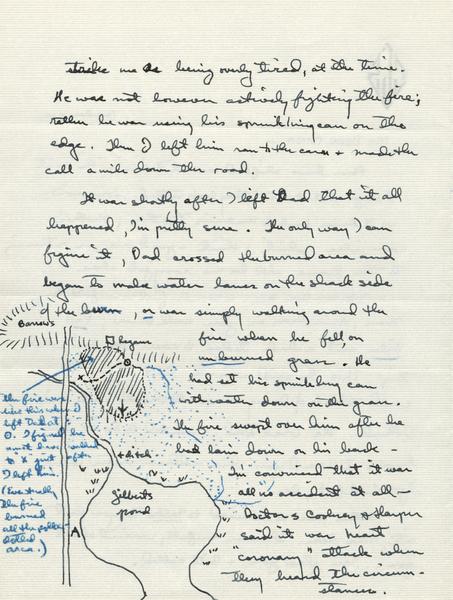 strike me as being overly tired, at the time.
He was not however actively fighting the fire;
rather he was using his sprinkling can on the
edge. Then I left him ran to the car + made the
call a mile down the road.
It was shortly after I left Dad that it all
happened, I'm pretty sure. The only way I can
figure it, Dad crossed the burned area and
began to make water lanes on the shack side
of the burn, or was simply walking around the
fire when he fell, on
unburned grass. He
had set his sprinkling can
with water down on the grass.
The fire swept over him after he
had lain down on his back -
I'm convinced that it was
all no accident at all -
Doctors Cooney & Harper
said it was heart
"coronary" attack when
they heard the circum-
stances.
Barrows
began
the fire was
like this when I
left Dad at
O. I figure he
must have walked
to X just after
I left him
(Eventually
the fire
burned
all the
dotted
area.)
ditch
Gilbert's
pond
A